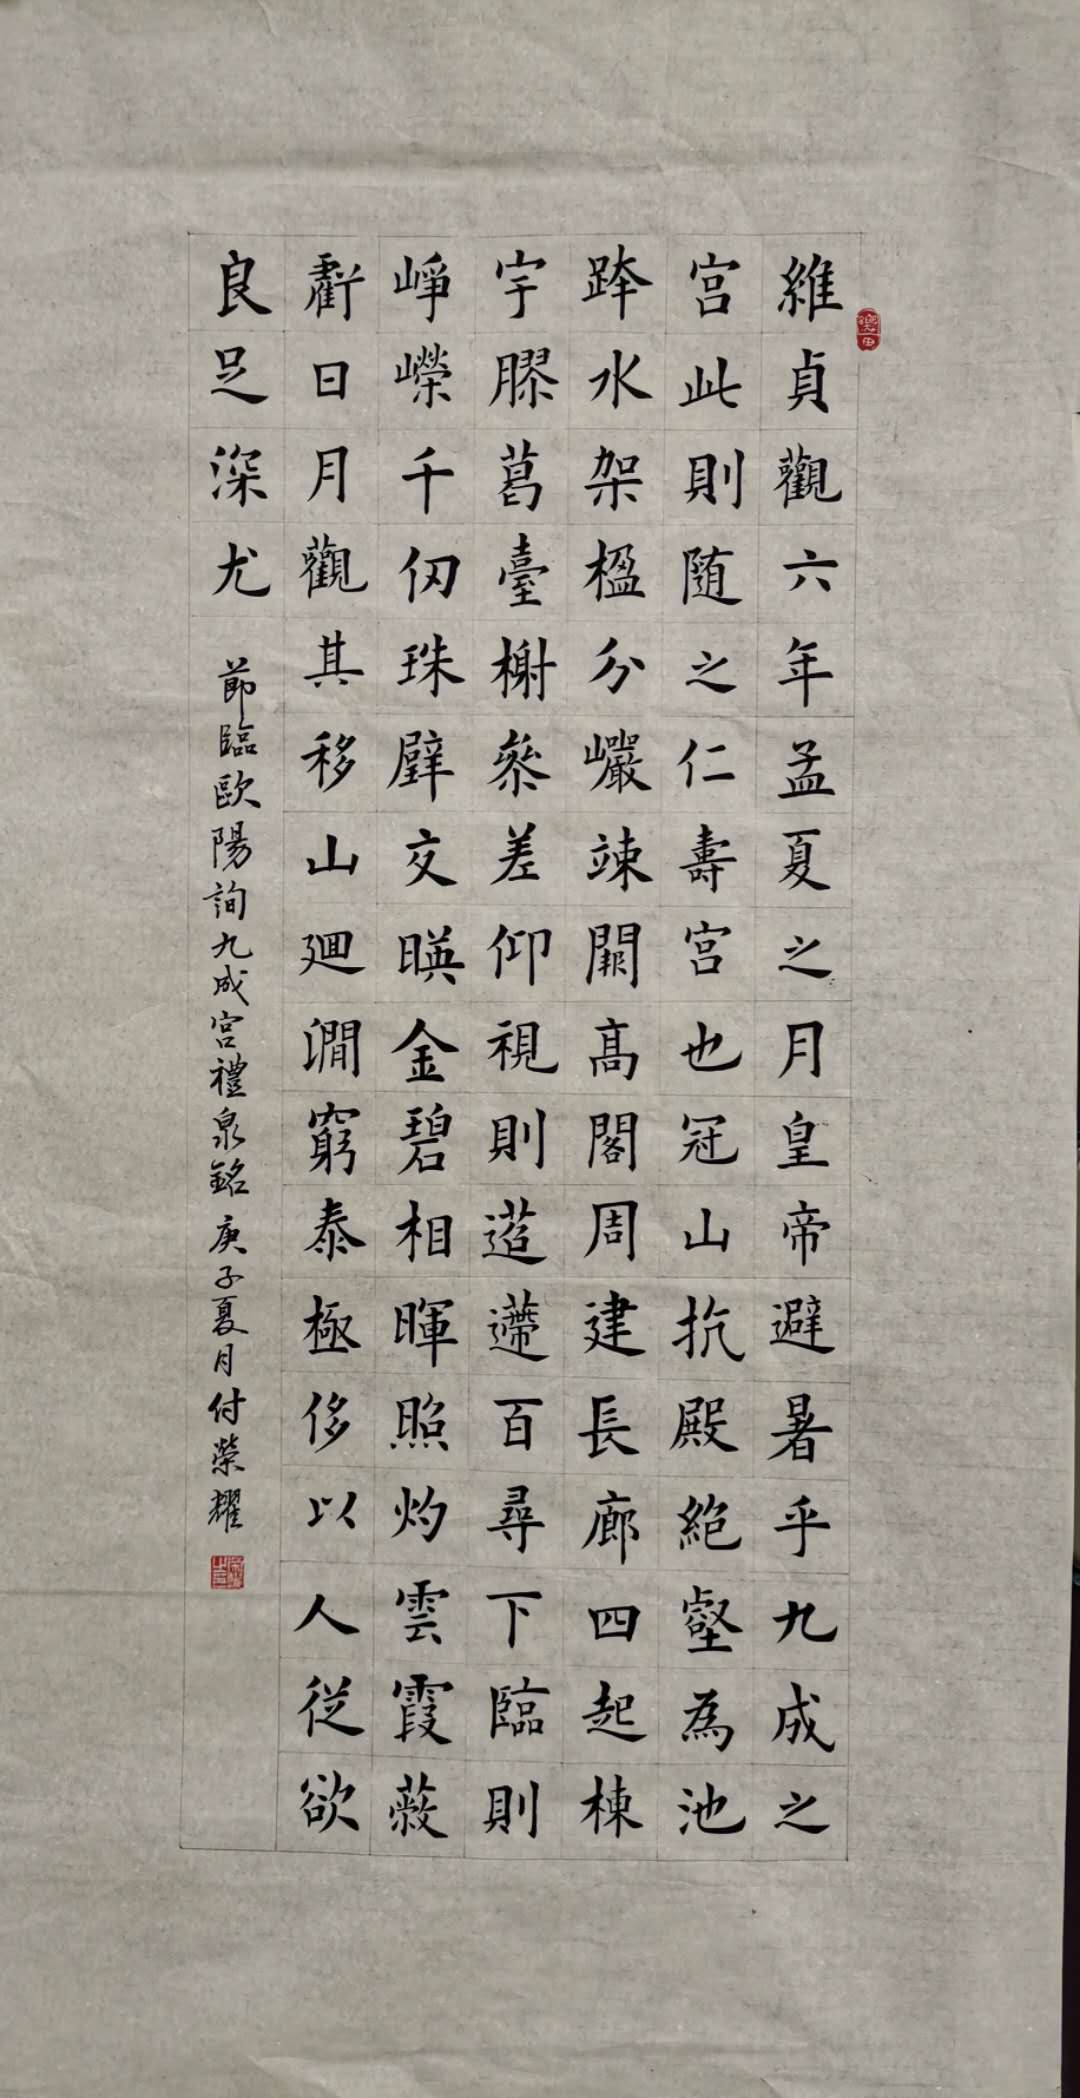 維貞觀六年孟夏之月皇帝避暑乎九成之
宮此則随之仁壽宮也冠山抗殿絶壑為池
跨水架楹分巗竦闕高閣周建長廊四起棟
宇膠葛臺榭叅差仰視則迢遰百尋下臨則
崢嶸千仞珠璧交暎金碧相暉照灼雲霞蔽
虧日月觀其移山廻澗窮泰極侈以人従欲
良足深尤
節臨歐陽詢九成宮禮泉銘庚子夏月付榮耀